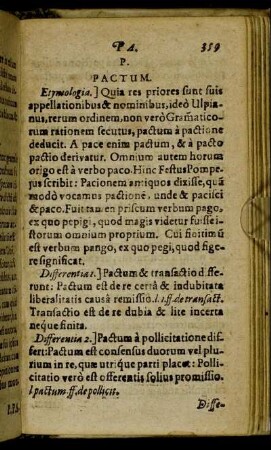 PA. 359
P.
PACTUM.
Etymologia.] Quia res priores sunt suis
appellationibus & nominibus, ideò Ulpia-
nus, rerum ordinem, non verò Gramatico-
rum rationem secutus, pactum à pactione
deducit. A pace enim pactum, & à pacto
pactio derivatur. Omnium autem horum
origo est à verbo paco. Hinc Festus Pompe-
jus scribit: Pacionem antiquos dixisse, quā
modò vocamus pactionē, unde & pacisci
& paco. Fuit tamen priscum verbum pago,
ex quo pepigi, quod magis videtur fuisse i-
storum omnium proprium. Cui finitimū
est verbum pango, ex quo pegi, quod fige-
re significat.
Differentia 1.] Pactum & transactio diffe-
runt: Pactum est de re certâ & indubitata
liberalitatis causâ remissio. l. 1. ff. de transact.
Transactio est de re dubia & lite incerta
neque finita.
Differentia 2.] Pactum à pollicitatione dif-
fert: Pactum est consensus duorum vel plu-
rium in re, quæ utriqúe parti placet: Polli-
citatio verò est offerentis solius promissio.
l. pactum. ff. de pollicit.
Diffe-